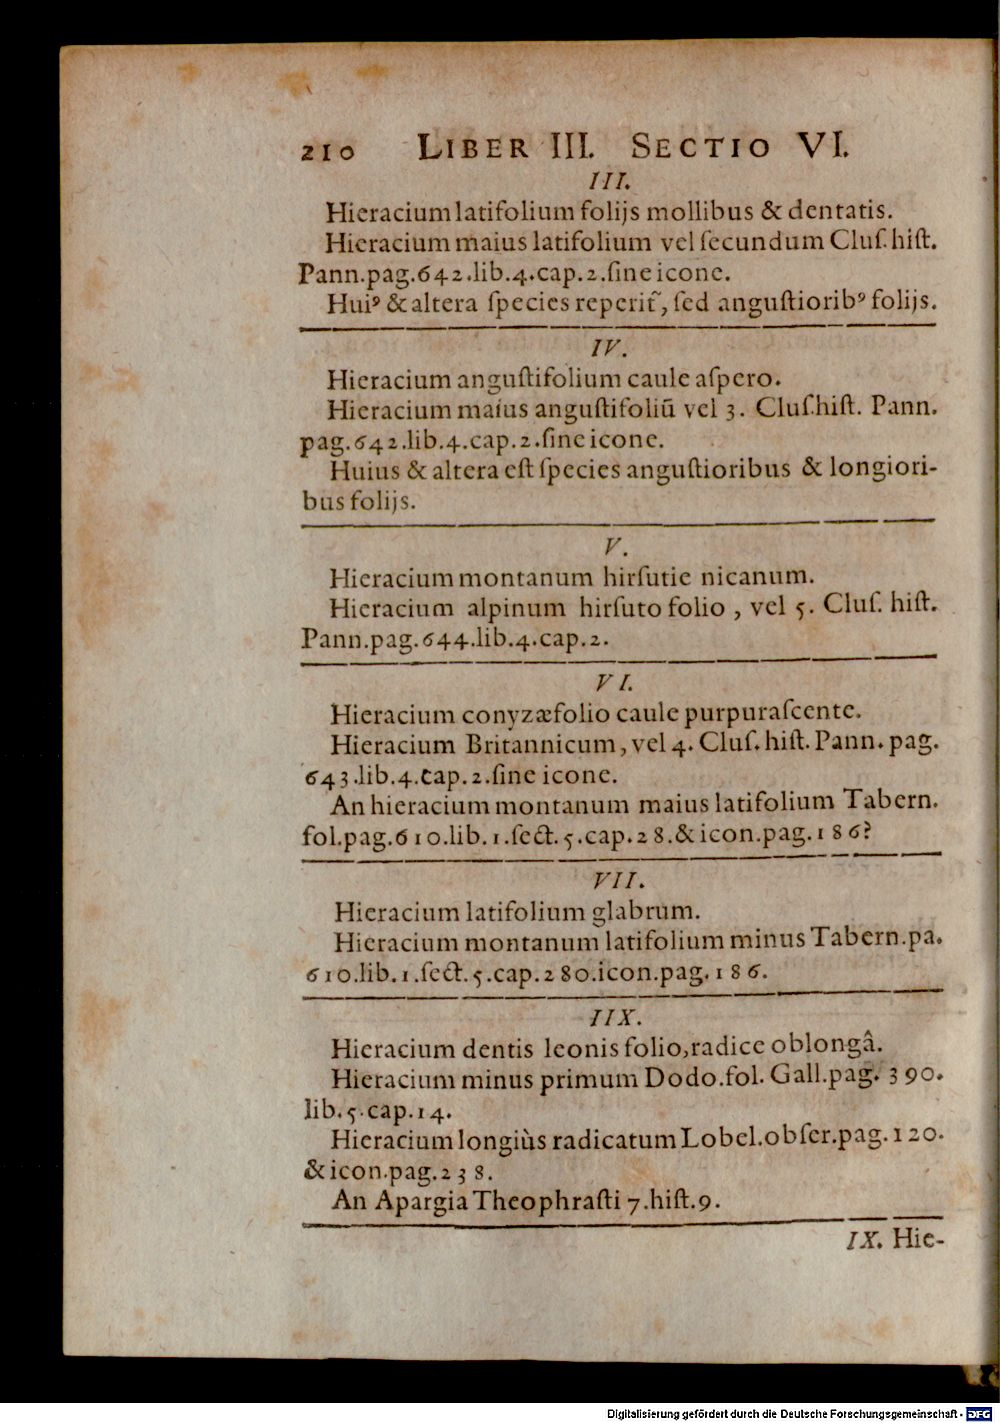 210 LIBER III. SECTIO VI.
III.
Hieracium latifolium folijs mollibus & dentatis.
Hieracium maius latifolium vel ſecundum Cluſ. hiſt.
Pann.pag.642.lib.4.cap.2.ſine icone.
Huiꝰ & altera ſpecies reperit̃, ſed anguſtioribꝰ folijs.
IV.
Hieracium anguſtifolium caule aſpero.
Hieracium maius anguſtifoliū vel 3. Cluſ.hiſt. Pann.
pag.642.lib.4.cap.2.ſine icone.
Huius & altera eſt ſpecies anguſtioribus & longiori-
bus folijs.
V.
Hieracium montanum hirſutie nicanum.
Hieracium alpinum hirſuto folio, vel 5. Cluſ. hiſt.
Pann.pag.644.lib.4.cap.2.
VI.
Hieracium conyzæfolio caule purpuraſcente.
Hieracium Britannicum, vel 4. Cluſ. hiſt. Pann. pag.
643.lib.4.cap.2.ſine icone.
An hieracium montanum maius latifolium Tabern.
fol.pag.610.lib.1.ſect.5.cap.28.& icon.pag.186?
VII.
Hieracium latifolium glabrum.
Hieracium montanum latifolium minus Tabern.pa.
610.lib.1.ſect.5.cap.280.icon.pag.186.
IIX.
Hieracium dentis leonis folio, radice oblongâ.
Hieracium minus primum Dodo.fol. Gall.pag. 390.
lib.5.cap.14.
Hieracium longiùs radicatum Lobel.obſer.pag.120.
& icon.pag.238.
An Apargia Theophraſti 7.hiſt.9.
IX. Hie-
Digitalisierung gefördert durch die Deutsche Forschungsgemeinschaft - DFG